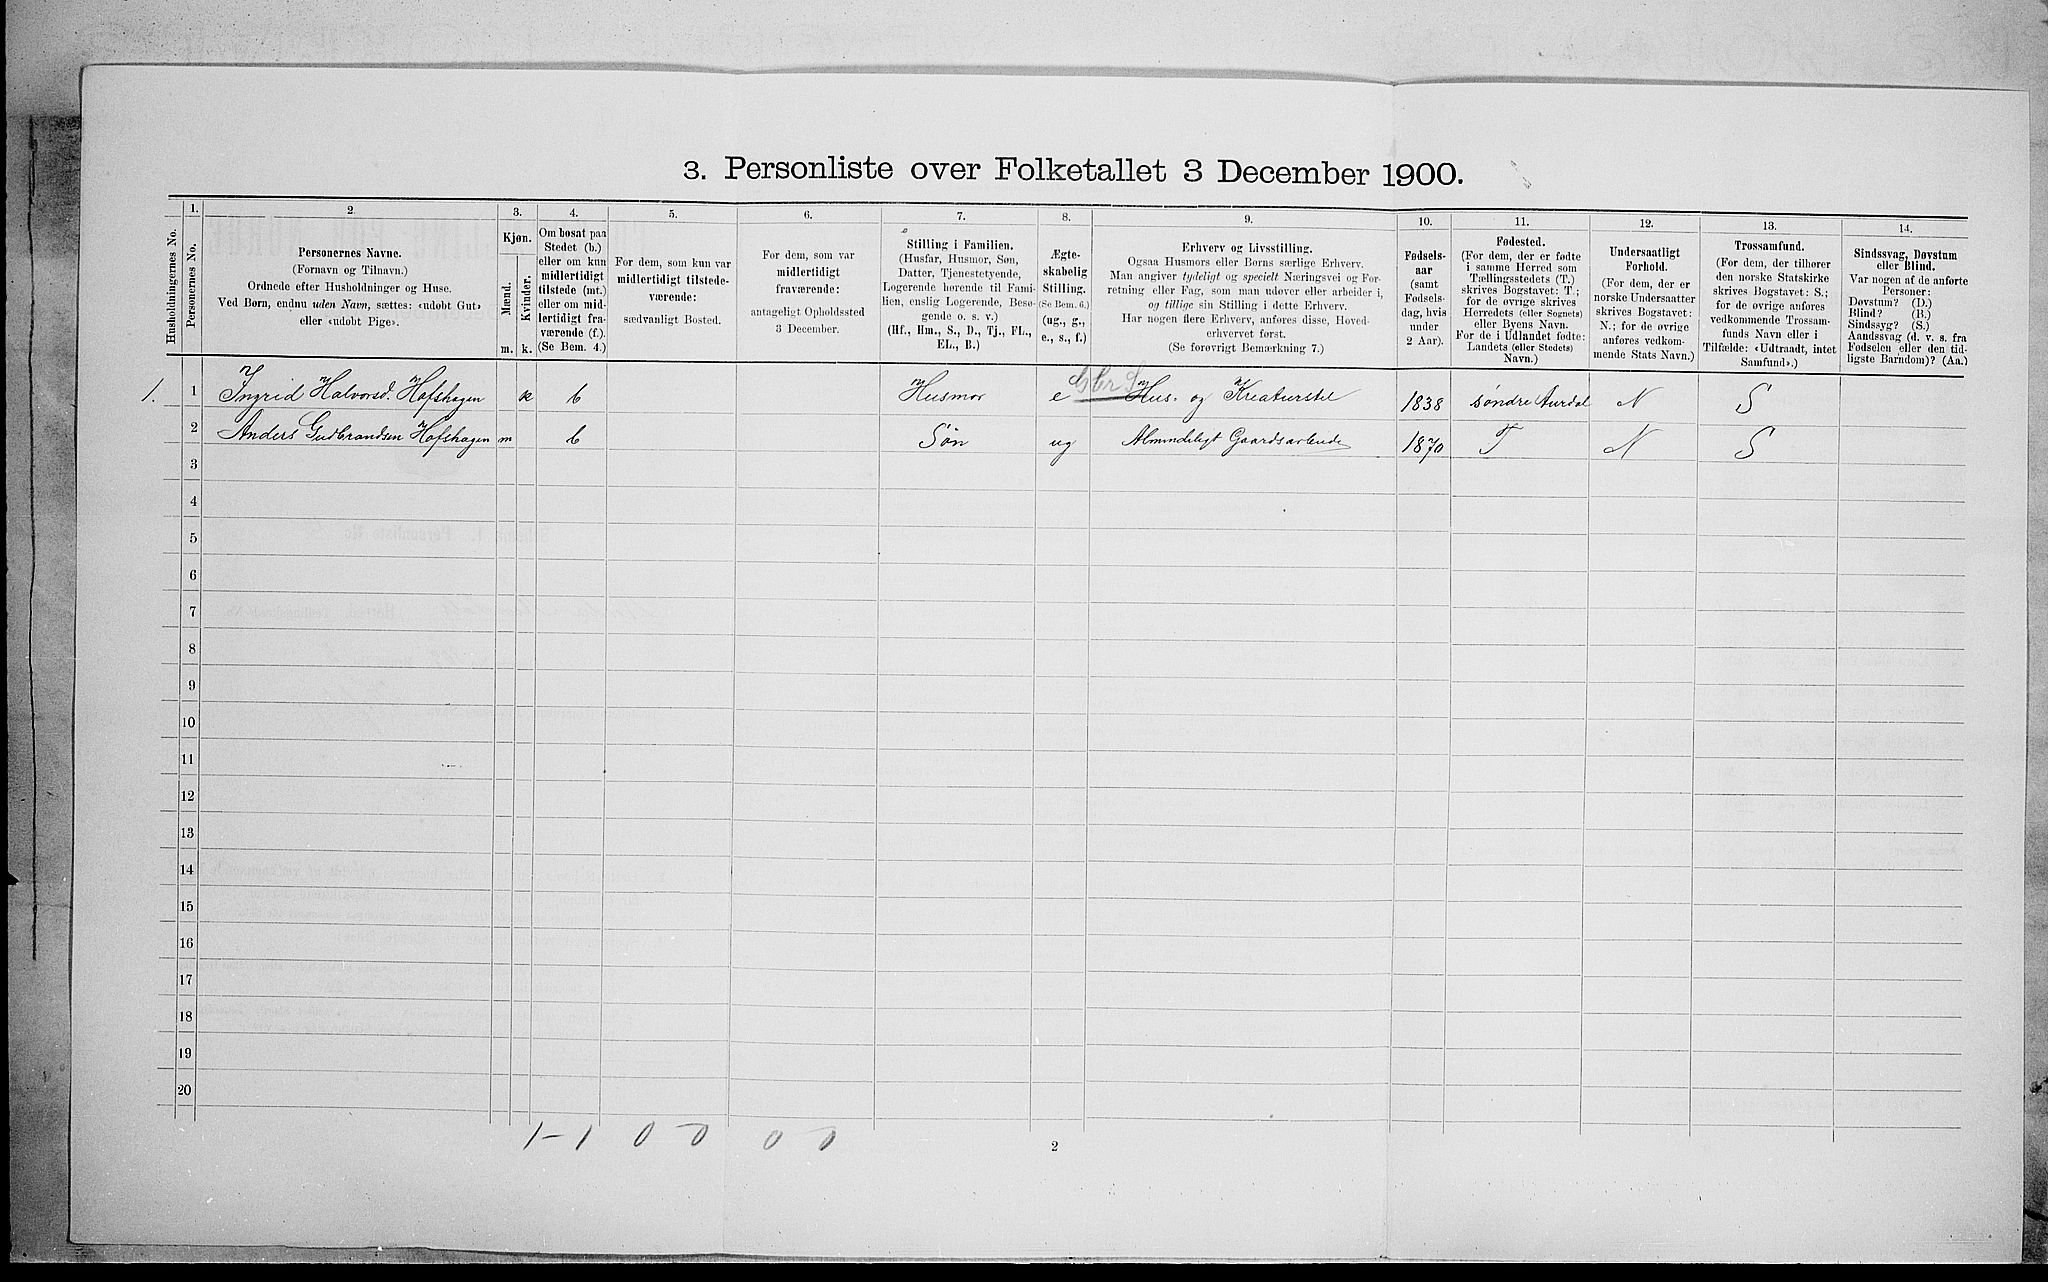 3. Personliste over Folketallet 3 December 1900.
1. 2. 3. 4. 5. 6. 7. 8. 9. 10. 11. 12. 13. 14.
Husholdningernes No.
Personernes No.
Personernes Navne.
(Fornavn og Tilnavn.)
Ordnede efter Husholdninger og Huse.
Ved Børn, endnu uden Navn, sættes: «udøbt Gut»
eller «udøbt Pige».
Kjøn.
Mænd.
Kvinder.
m. k.
Om bosat paa
Stedet (b.)
eller om kun
midlertidigt
tilstede (mt.)
eller om mid-
lertidigt fra-
værende (f.)
(Se Bem. 4.)
For dem, som kun var
midlertidigt tilstede-
værende:
sædvanligt Bosted.
For dem, som var
midlertidigt
fraværende:
antageligt Opholdssted
3 December.
Stilling i Familien.
(Husfar, Husmor, Søn,
Datter, Tjenestetyende,
Logerende hørende til Fami-
lien, enslig Logerende, Besø-
gende o. s. v.)
(Hf., Hm., S., D., Tj., FL.,
EL., B.)
Ægte-
skabelig
Stilling.
(Se Bem. 6.)
(ug., g.,
e., s., f.)
Erhverv og Livsstilling.
Ogsaa Husmors eller Børns særlige Erhverv.
Man angiver tydeligt og specielt Næringsvei og For-
retning eller Fag, som man udøver eller arbeider i,
og tillige sin Stilling i dette Erhverv.
Har nogen flere Erhverv, anføres disse, Hoved-
erhvervet først.
(Se forøvrigt Bemærkning 7.)
Fødsels-
aar
(samt
Fødsels-
dag, hvis
under
2 Aar).
Fødested.
(For dem, der er fødte
i samme Herred som
Tællingsstedets (T.)
skrives Bogstavet: T.;
for de øvrige skrives
Herredets (eller Sognets)
eller Byens Navn.
For de i Udlandet fødte:
Landets (eller Stedets)
Navn.)
Undersaatligt
Forhold.
(For dem, der er
norske Undersaatter
skrives Bogstavet:
N.; for de øvrige
anføres vedkom-
mende Stats Navn.)
Trossamfund.
(For dem, der tilhører
den norske Statskirke
skrives Bogstavet: S.;
for de øvrige anføres
vedkommende Trossam-
funds Navn eller i
Tilfælde: «Udtraadt, intet
Samfund».)
Sindssvag, Døvstum
eller Blind.
Var nogen af de anførte
Personer:
Døvstum? (D.)
Blind? (B.)
Sindssyg? (S.)
Aandssvag (d. v. s. fra
Fødselen eller den tid-
ligste Barndom)? (Aa.)
1. 1 Ingrid Halvorsd. Hofshagen k b Husmor e Hus- og Kreaturstel 1838 søndre Aurdal N S
2 Anders Gudbrandsen Hofshagen m b Søn ug Almindeligt Gaardsarbeide 1870 T N S
3
4
5
6
7
8
9
10
11
12
13
14
15
16
17
18
19
20
1-1 0 0 0 0
2